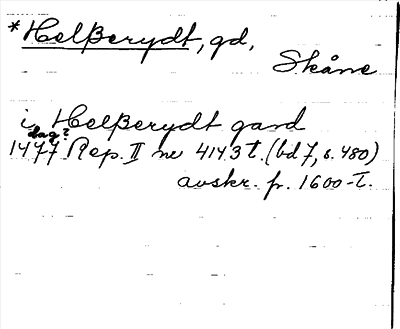 *Helßerydt, gd,
Skåne
i Helßerydt gard
dag?
1477 Rep. II nr 4143 t. (bd 7, s. 480)
avskr. fr. 1600-t.